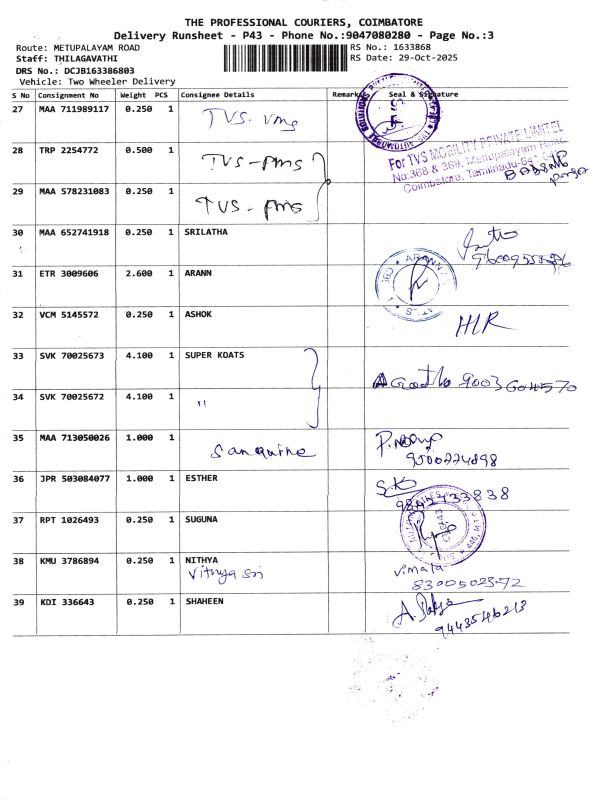 THE PROFESSIONAL COURIERS, COIMBATORE
Delivery Runsheet - P43 - Phone No.:9047080280 - Page No.:3
Route: METUPALAYAM ROAD RS No.: 1633868
Staff: THILAGAVATHI RS Date: 29-Oct-2025
DRS No.: DCJB163386803
Vehicle: Two Wheeler Delivery
S No Consignment No Weight PCS Consignee Details Remark Seal & Signature
27 MAA 711989117 0.250 1 TVS-vms
28 TRP 2254772 0.500 1 TVS-pms
For TVS MOBILITY PRIVATE LIMITED
No.368 & 369, Mettupalayam Road,
Coimbatore, Tamilnadu-641
29 MAA 578231083 0.250 1 TVS-pms
30 MAA 652741918 0.250 1 SRILATHA
31 ETR 3009606 2.600 1 ARANN
ARANN
32 VCM 5145572 0.250 1 ASHOK HIR
33 SVK 70025673 4.100 1 SUPER KOATS
9003604570
34 SVK 70025672 4.100 1 "
35 MAA 713050026 1.000 1 Sanquine
9500224898
36 JPR 503084077 1.000 1 ESTHER SK
37 RPT 1026493 0.250 1 SUGUNA
38 KMU 3786894 0.250 1 NITHYA Vimala
Vithya Sri
39 KDI 336643 0.250 1 SHAHEEN
9443546213